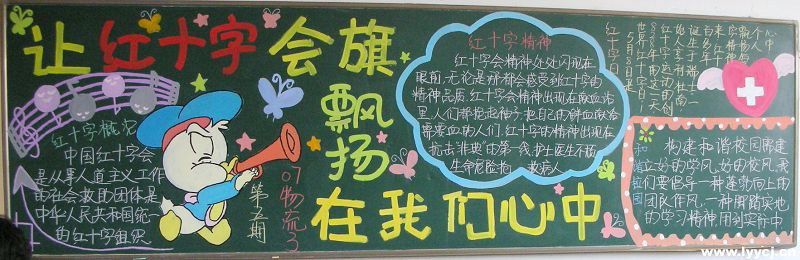 让红十字会旗
飘扬
在我们心中
红十字概况
中国红十字会
是从事人道主义工作
的社会救助团体是
中华人民共和国统一
的红十字组织
第五期
07物流3
红十字精神
红十字会精神处处闪现在
眼前,无论是
精神品质.红十字会精神出现在献血站
里,人们都挽起袖子把自己的鲜血献给
需要血的人们.红十字的精神出现在
抗击"非典"的第一线,护士医生不顾
生命危险抢救病人
世界红十字日
5月8日是
红十字日
构建和谐校园需建
立好的学风,好的校风,我
们要倡导一种蓬勃向上的
团队作风,一种脚踏实地
的学习精神,用到实际中
www.lyycj.cn